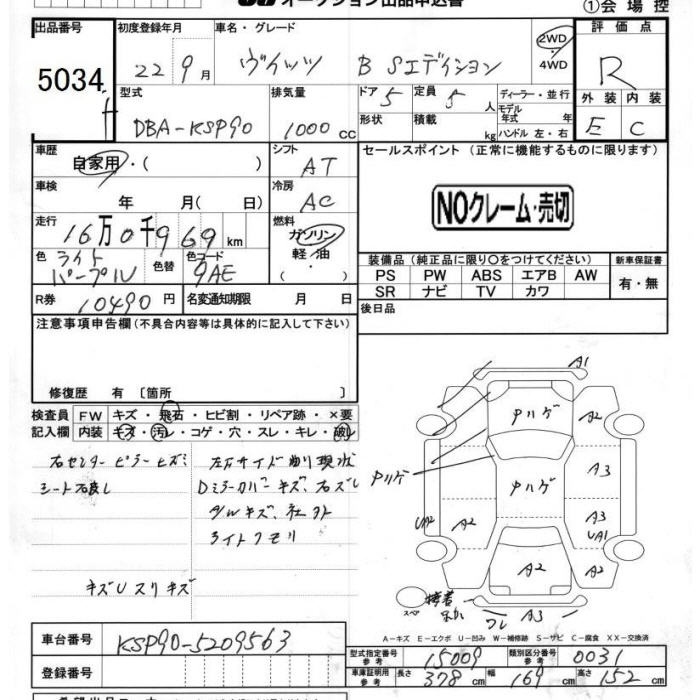 オークション出品申込書
①会場控
出品番号
5034
初度登録年月
22 9月
車名・グレード
ヴィッツ B Sエディション
2WD・4WD
評価点
R
外装 内装
E C
型式
DBA-KSP90
排気量
1000cc
ドア 5
定員 5人
形状
積載 kg
ディーラー・並行
モデル年式 年
ハンドル 左・右
車歴
自家用・( )
シフト
AT
セールスポイント(正常に機能するものに限ります)
NOクレーム・売切
車検
年 月( 日)
冷房
AC
走行
16万0千969km
燃料
ガソリン
軽油
色
ライトパープルU
色替
色コード
9AE
装備品(純正品に限り○をつけてください)
PS PW ABS エアB AW
SR ナビ TV カワ
新車保証書
有・無
R券
10490円
名変通知期限 月 日
後日品
注意事項申告欄(不具合内容等は具体的に記入して下さい)
修復歴 有〔箇所 〕
検査員記入欄
FW キズ・飛石・ヒビ割・リペア跡・×要
内装 キズ・汚レ・コゲ・穴・スレ・キレ・破レ
右センターピラーヒズミ
シート石良し
左右サイド
現状
Dミラーカバーキズ、右ズレ
AWキズ
ライトクモリ
キズUスリキズ
A1
A2
A3
A3
UA1
A2
UA2
A2
A2
A3
中ハゲ
中ハゲ
中ハゲ
スペア
接着
フレ
A-キズ E-エクボ U-凹み W-補修跡 S-サビ C-腐食 XX-交換済
車台番号
KSP90-5209563
登録番号
型式指定番号 参考
15009
類別区分番号 参考
0031
車庫証明用 参考
長さ 378cm 幅 169cm 高さ 152cm